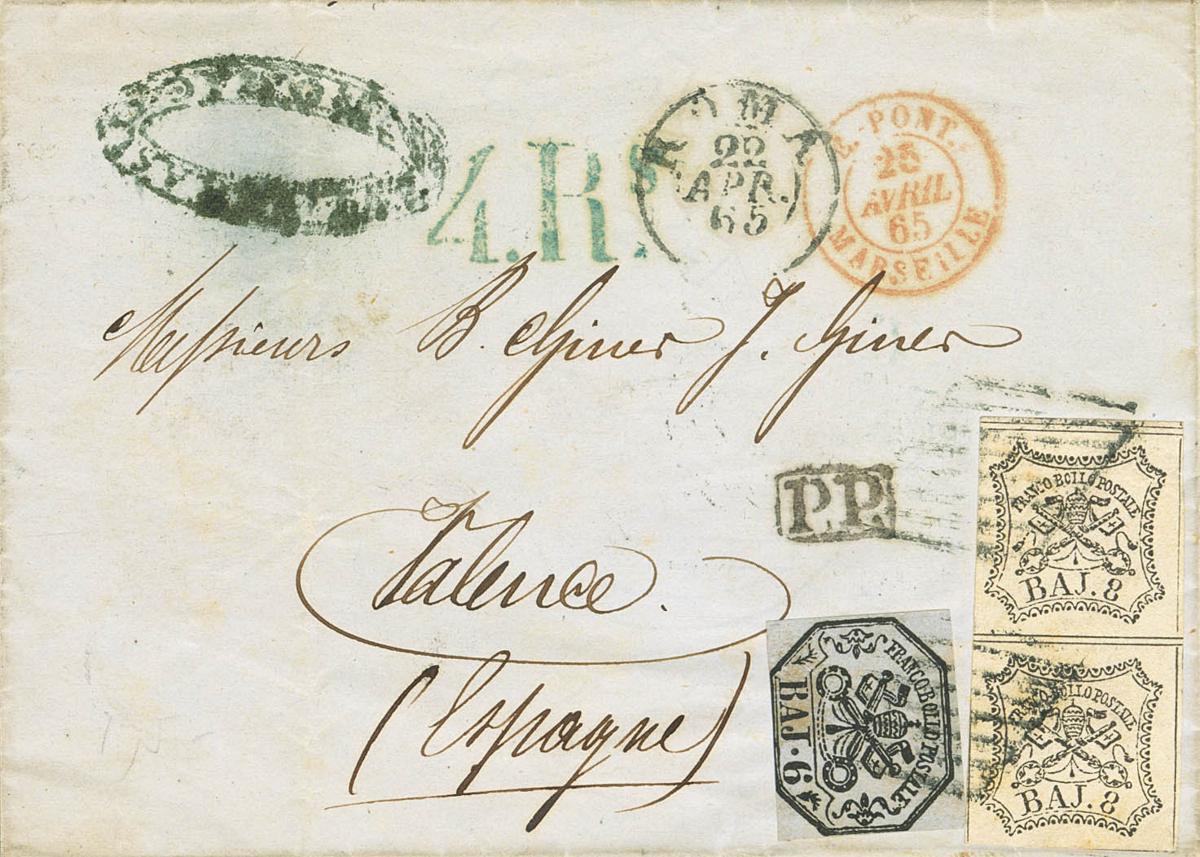 4.Rs
ROMA
22
APR.
65
E. PONT.
25
AVRIL
65
MARSEILLE
Messieurs B. Giner J. Giner
P.P.
Valence.
(Espagne)
FRANCO BOLLO POSTALE
BAJ. 8
FRANCO BOLLO POSTALE
BAJ·6
FRANCO BOLLO POSTALE
BAJ. 8